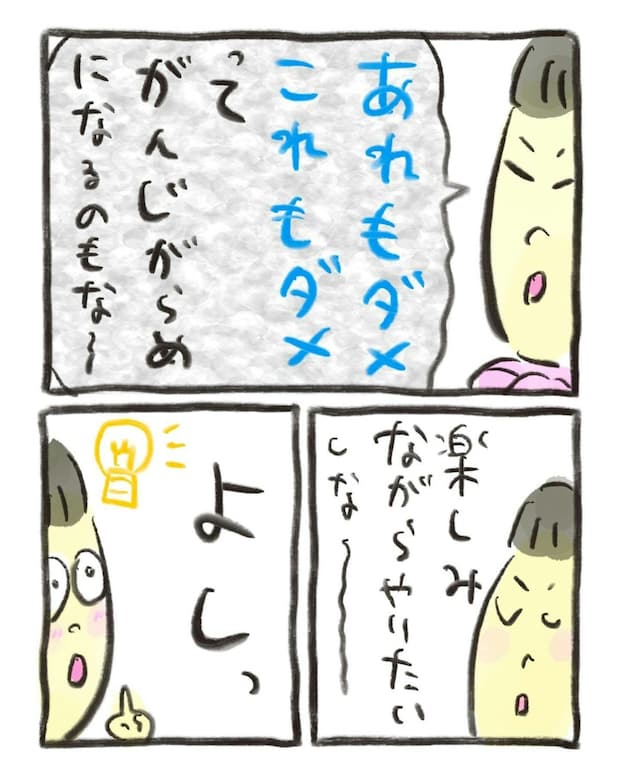 あれもダメ
これもダメ
って
がんじがらめ
になるのもな〜
楽しみ
ながらやりたい
しな〜
よしっ